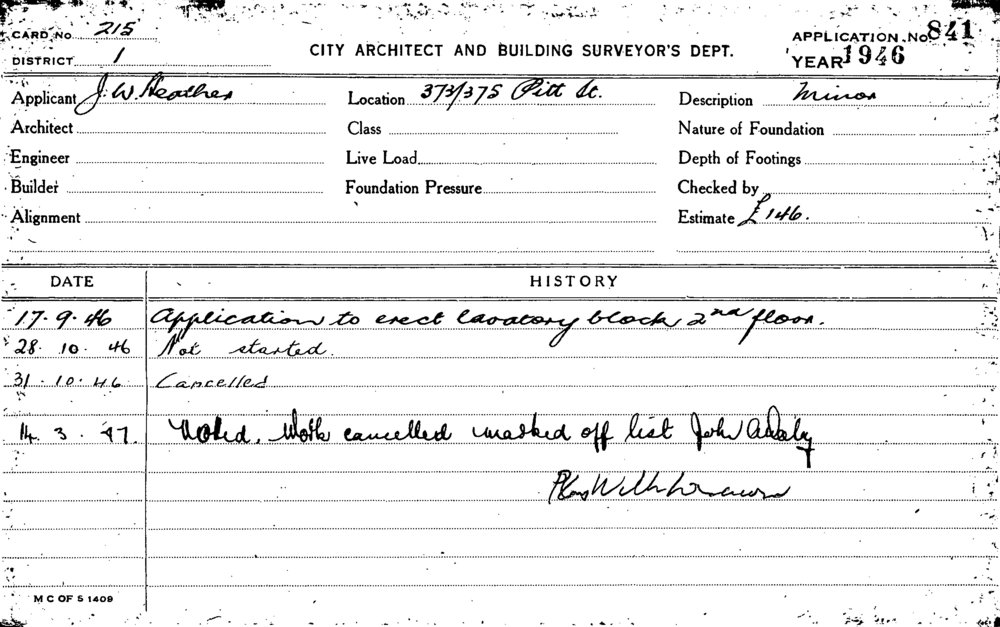 CARD No. 215
APPLICATION. No 841
DISTRICT 1
CITY ARCHITECT AND BUILDING SURVEYOR'S DEPT.
YEAR 1946
Applicant J. W. Heather
Location 373/375 Pitt St.
Description Minor
Architect
Class
Nature of Foundation
Engineer
Live Load
Depth of Footings
Builder
Foundation Pressure
Checked by
Alignment
Estimate £146.
DATE HISTORY
17.9.46 Application to erect lavatory block 2nd floor.
28.10.46 Not started.
31.10.46 Cancelled
14.3.47. Noted. Work cancelled marked off list John A Daly
Plans Withdrawn
M C OF S 1409